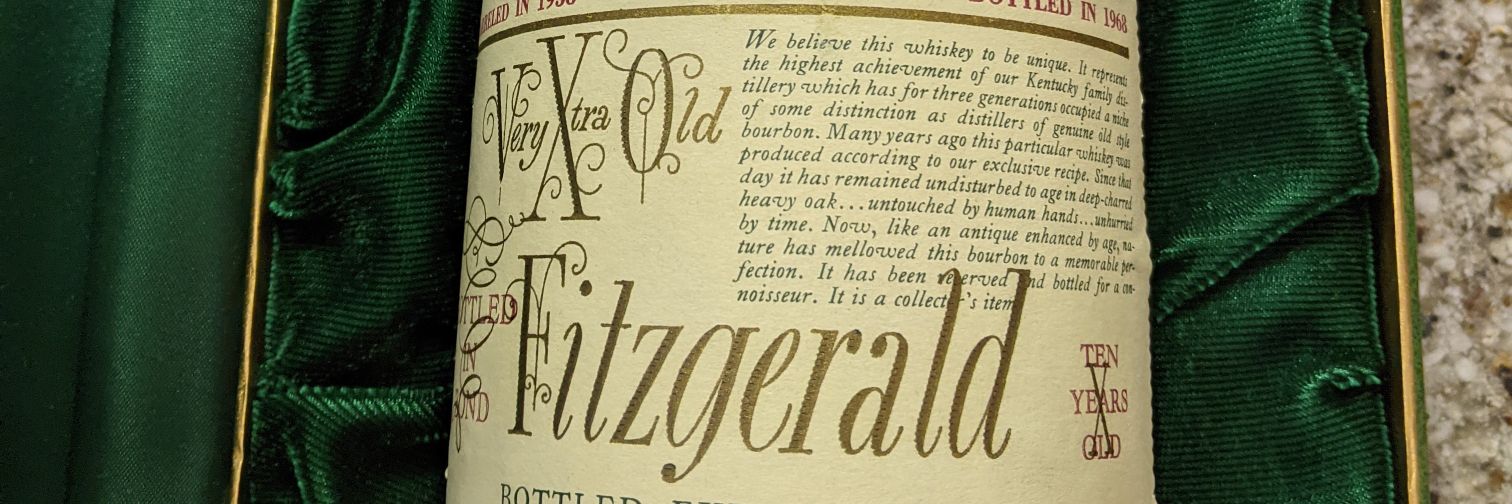 IN 1958
BOTTLED IN 1968
Very Xtra Old
We believe this whiskey to be unique. It represents
the highest achievement of our Kentucky family dis-
tillery which has for three generations occupied a niche
of some distinction as distillers of genuine old style
bourbon. Many years ago this particular whiskey was
produced according to our exclusive recipe. Since that
day it has remained undisturbed to age in deep-charred
heavy oak...untouched by human hands...unhurried
by time. Now, like an antique enhanced by age, na-
ture has mellowed this bourbon to a memorable per-
fection. It has been reserved and bottled for a con-
noisseur. It is a collector's item
Fitzgerald
BOTTLED
IN
BOND
TEN
YEARS
X
OLD
BOTTLED